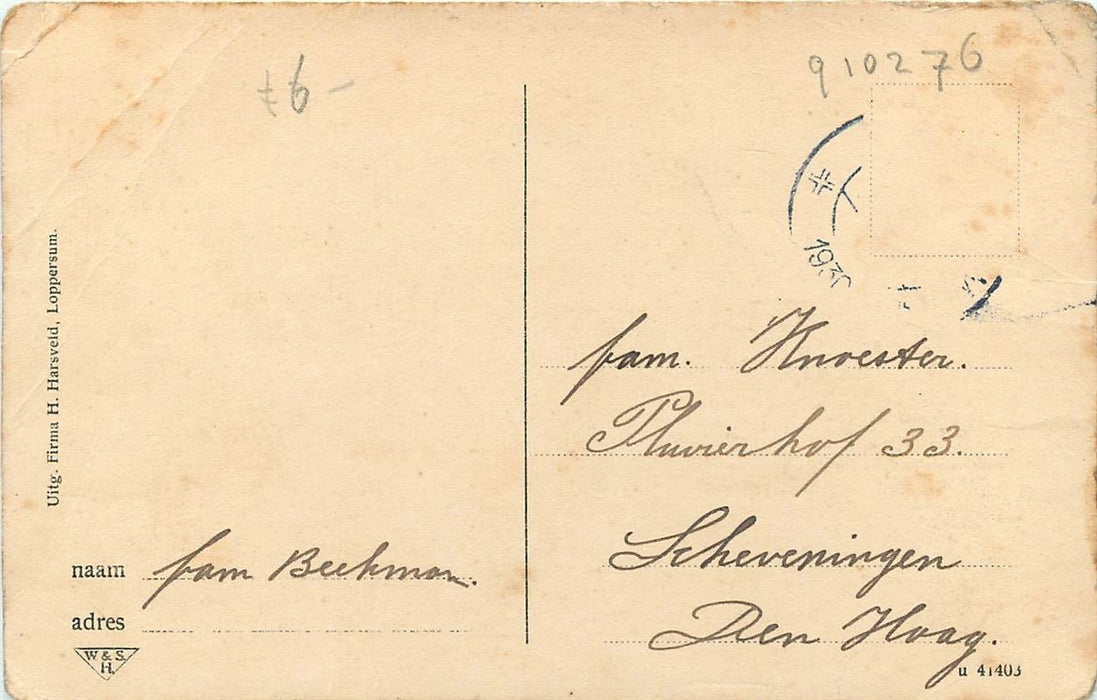 £6-
910276
1930
Uitg. Firma H. Harsveld, Loppersum.
fam. Knoester.
Pluvierhof 33.
Scheveningen
Den Haag.
naam fam Beekman.
adres
W & S.
H.
u 41403